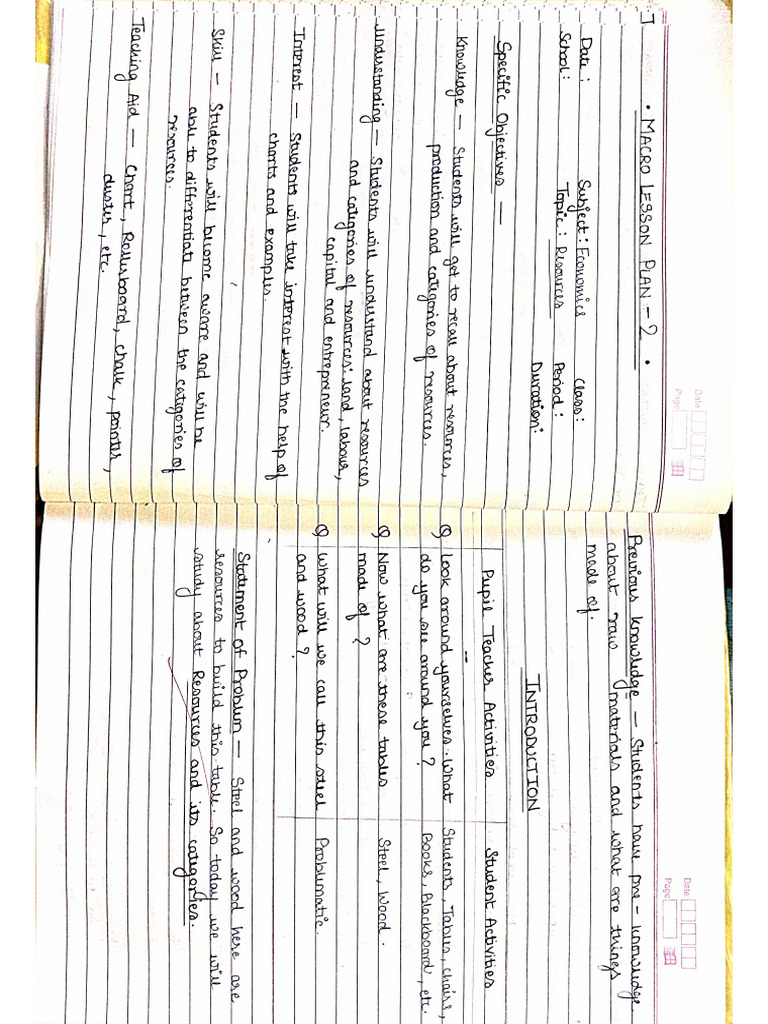 Date
Page
• MACRO LESSON PLAN - 2 •
Date : Subject : Economics Class :
School : Topic : Resources Period :
Duration :
Specific Objectives —
Knowledge — Students will get to recall about resources,
production and categories of resources.
Understanding — Students will understand about resources
and categories of resources: land, labour,
capital and entrepreneur.
Interest — Students will take interest with the help of
charts and examples.
Skill — Students will become aware and will be
able to differentiate between the categories of
resources.
Teaching Aid — Chart, Rollerboard, chalk, pointer,
duster, etc.
Date
Page
Previous Knowledge — Students have pre-knowledge
about raw materials and what are things
made of.
INTRODUCTION
Pupil Teacher Activities Student Activities
Q Look around yourselves. What Students, Tables, chairs,
do you see around you ? Books, Blackboard, etc.
Q Now what are these tables Steel, Wood.
made of ?
Q What will we call this steel Problematic.
and wood ?
Statement of Problem — Steel and wood here are
resources to build this table. So today we will
study about Resources and its categories.